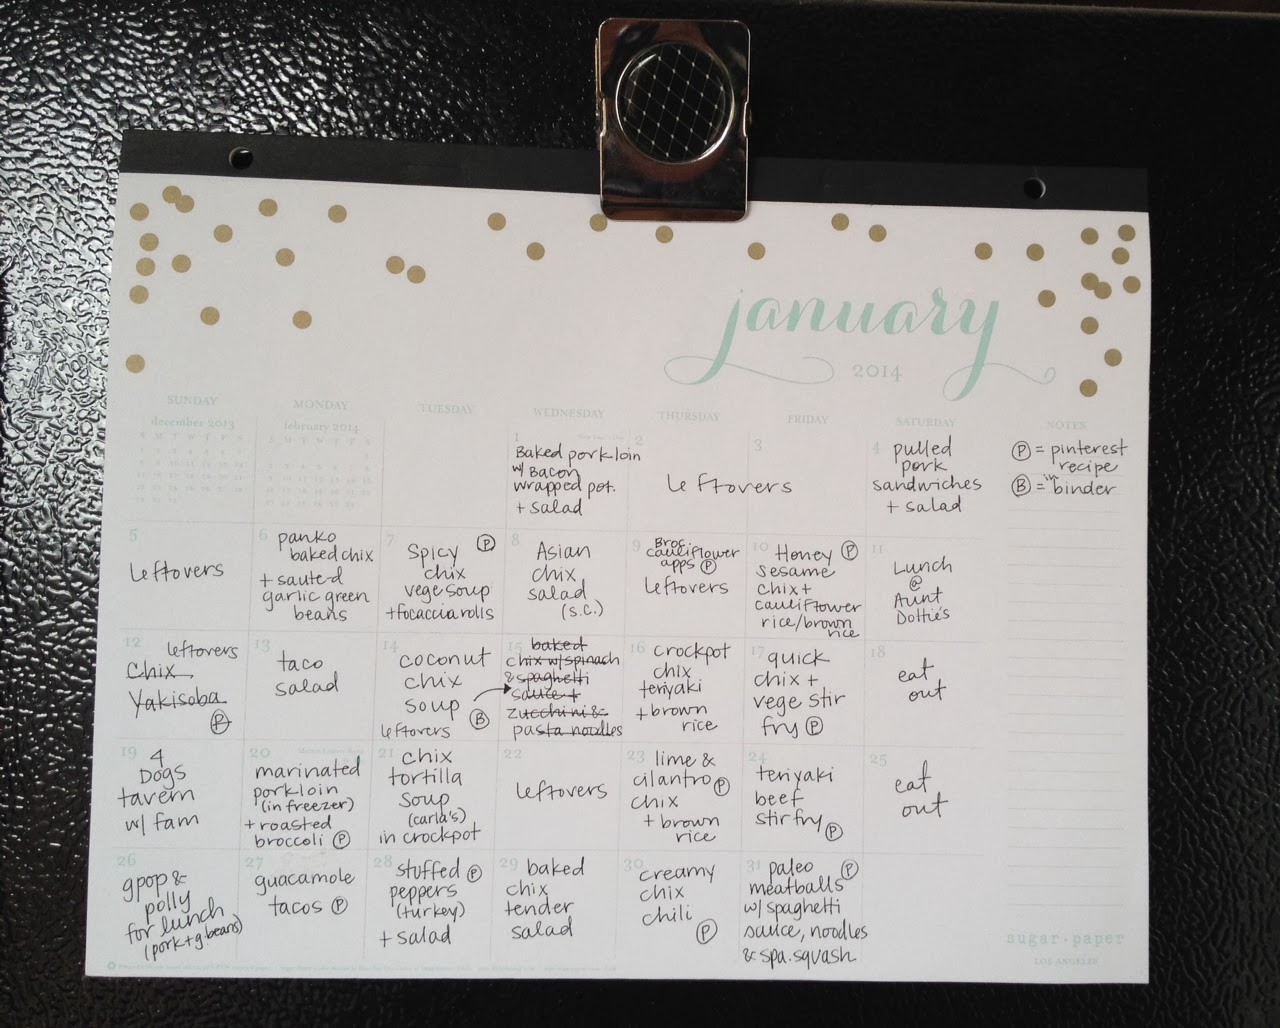 january
2014
SUNDAY
MONDAY
TUESDAY
WEDNESDAY
THURSDAY
FRIDAY
SATURDAY
NOTES
december 2013
february 2014
1
Baked porkloin
w/ Bacon
wrapped pot.
+ salad
2
3
leftovers
4
pulled
pork
sandwiches
+ salad
Ⓟ = pinterest
recipe
Ⓑ = in binder
5
leftovers
6
panko
baked chix
+ sauted
garlic green
beans
7
Spicy Ⓟ
chix
vege soup
+ focaccia rolls
8
Asian
chix
salad
(s.c.)
9
Broc.
cauliflower
apps Ⓟ
leftovers
10
Honey Ⓟ
sesame
chix +
cauliflower
rice/brown
rice
11
Lunch
@
Aunt
Dottie's
12
leftovers
Chix
Yakisoba
Ⓟ
13
taco
salad
14
coconut
chix
soup
leftovers Ⓑ
15
baked
chix w/ spinach
& spaghetti
sauce +
zucchini &
pasta noodles
16
crockpot
chix
teriyaki
+ brown
rice
17
quick
chix +
vege stir
fry Ⓟ
18
eat
out
19
4
Dogs
tavern
w/ fam
20
marinated
porkloin
(in freezer)
+ roasted
broccoli Ⓟ
21
chix
tortilla
soup
(carla's)
in crockpot
22
leftovers
23
lime &
cilantro Ⓟ
chix
+ brown
rice
24
teriyaki
beef
stir fry Ⓟ
25
eat
out
26
gpop &
polly
for lunch
(pork + g.beans)
27
guacamole
tacos Ⓟ
28
stuffed Ⓟ
peppers
(turkey)
+ salad
29
baked
chix
tender
salad
30
creamy
chix
chili
Ⓟ
31
paleo Ⓟ
meatballs
w/ spaghetti
sauce, noodles
& spa. squash
sugar·paper
LOS ANGELES